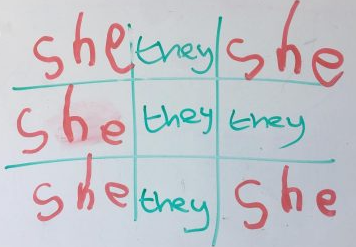 she they she
she they they
she they she